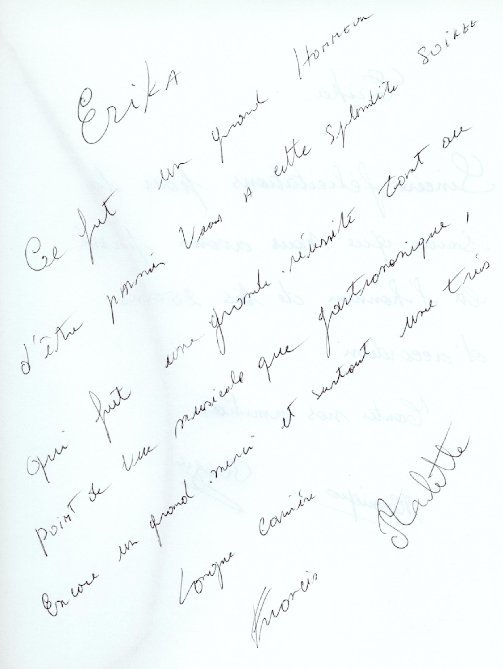 Erika
Ce fut un grand Honneur
d'être parmis vous a cette splendite soirée
qui fut une grande réussite tant au
point de vue musicale que gastronomique,
Encore un grand merci et surtout une très
longue carrière
Francis